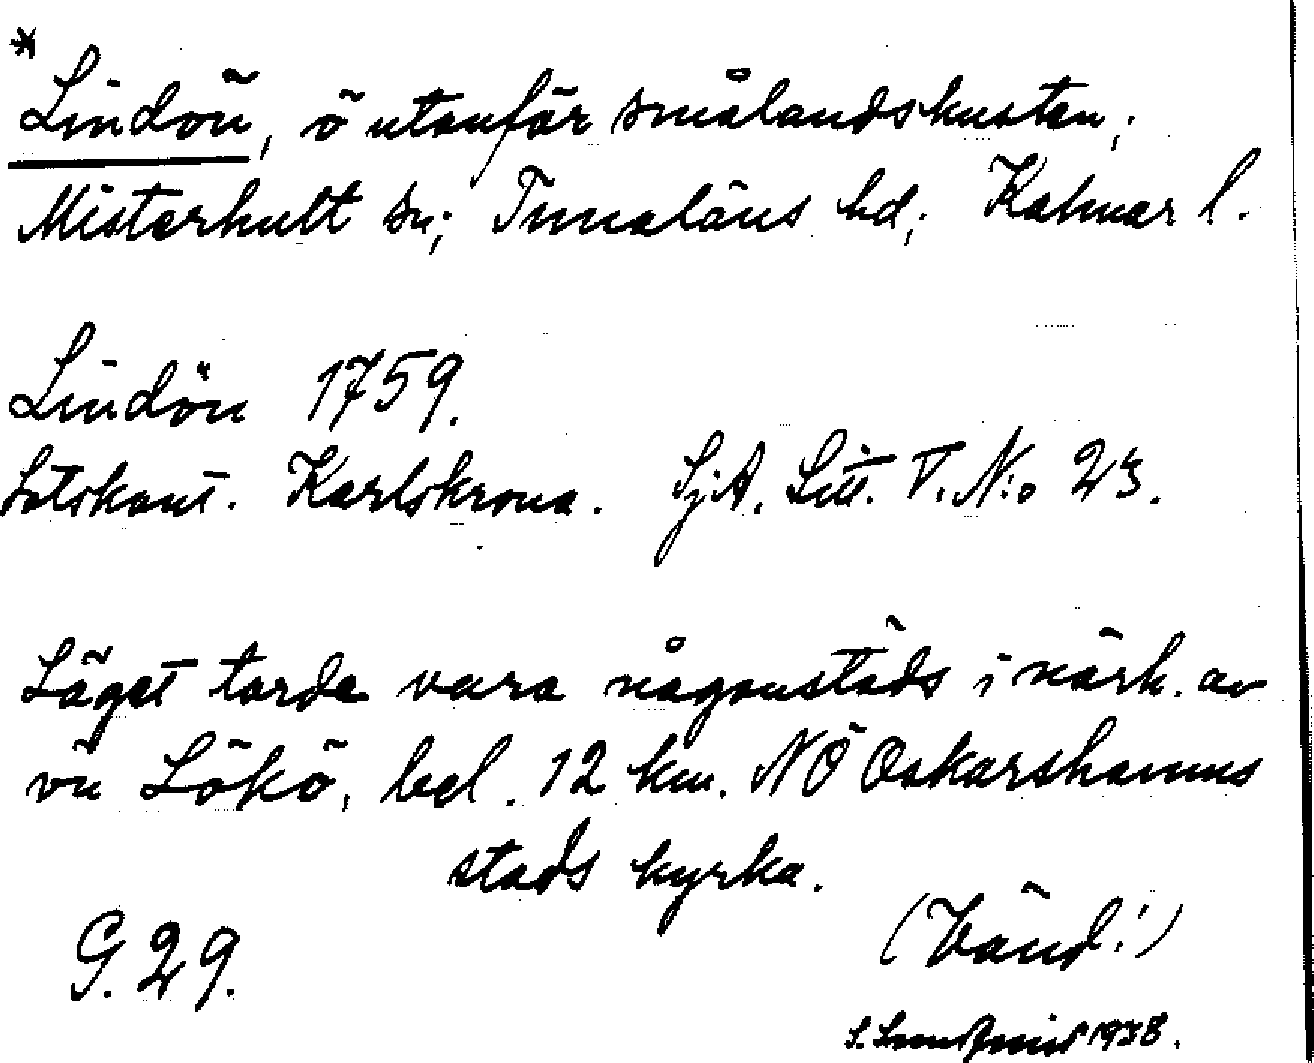 * Lindön, ö utanför smålandskusten;
Misterhult sn; Tunaläns hd; Kalmar l.
Lindön 1759.
Lotskont. Karlskrona. SjA. Litt. V. N:o 23.
Läget torde vara någonstäds i närh. av
ön Lökö, bel. 12 km. NÖ Oskarshamns
stads kyrka.
G. 29.
(Vänd!)
1938.